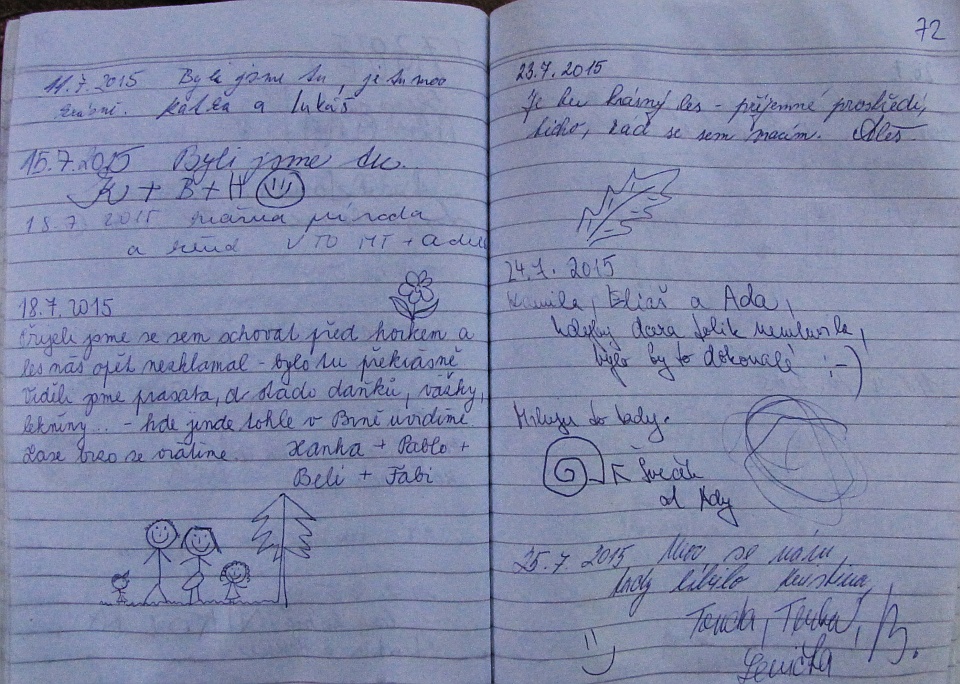 11.7.2015 Byli jsme tu, je tu moc
krásně. a Lukáš
15.7.2015 Byli jsme tu.
K + B + H
18.7 2015 krásná příroda
a
18.7.2015
Přijeli jsme se sem schovat před horkem a
les nás opět nezklamal - bylo tu překrásně
Viděli jsme prasata, stádo daňků, vážky,
lekníny... - kde jinde tohle v Brně uvidíme
Zase brzo se vrátíme. Hanka + Pablo +
Beli + Fabi
72
23.7.2015
Je tu krásný les - příjemné prostředí,
ticho, rád se sem vracím. Aleš
24.7. 2015
Kamila, Eliáš a Ada,
kdyby dcera tolik nemluvila,
bylo by to dokonalé ;-)
Miluju to tady.
Šneček
od Ady
25.7.2015 Moc se nám
tady líbilo
Tonda, Terka,
Lenička